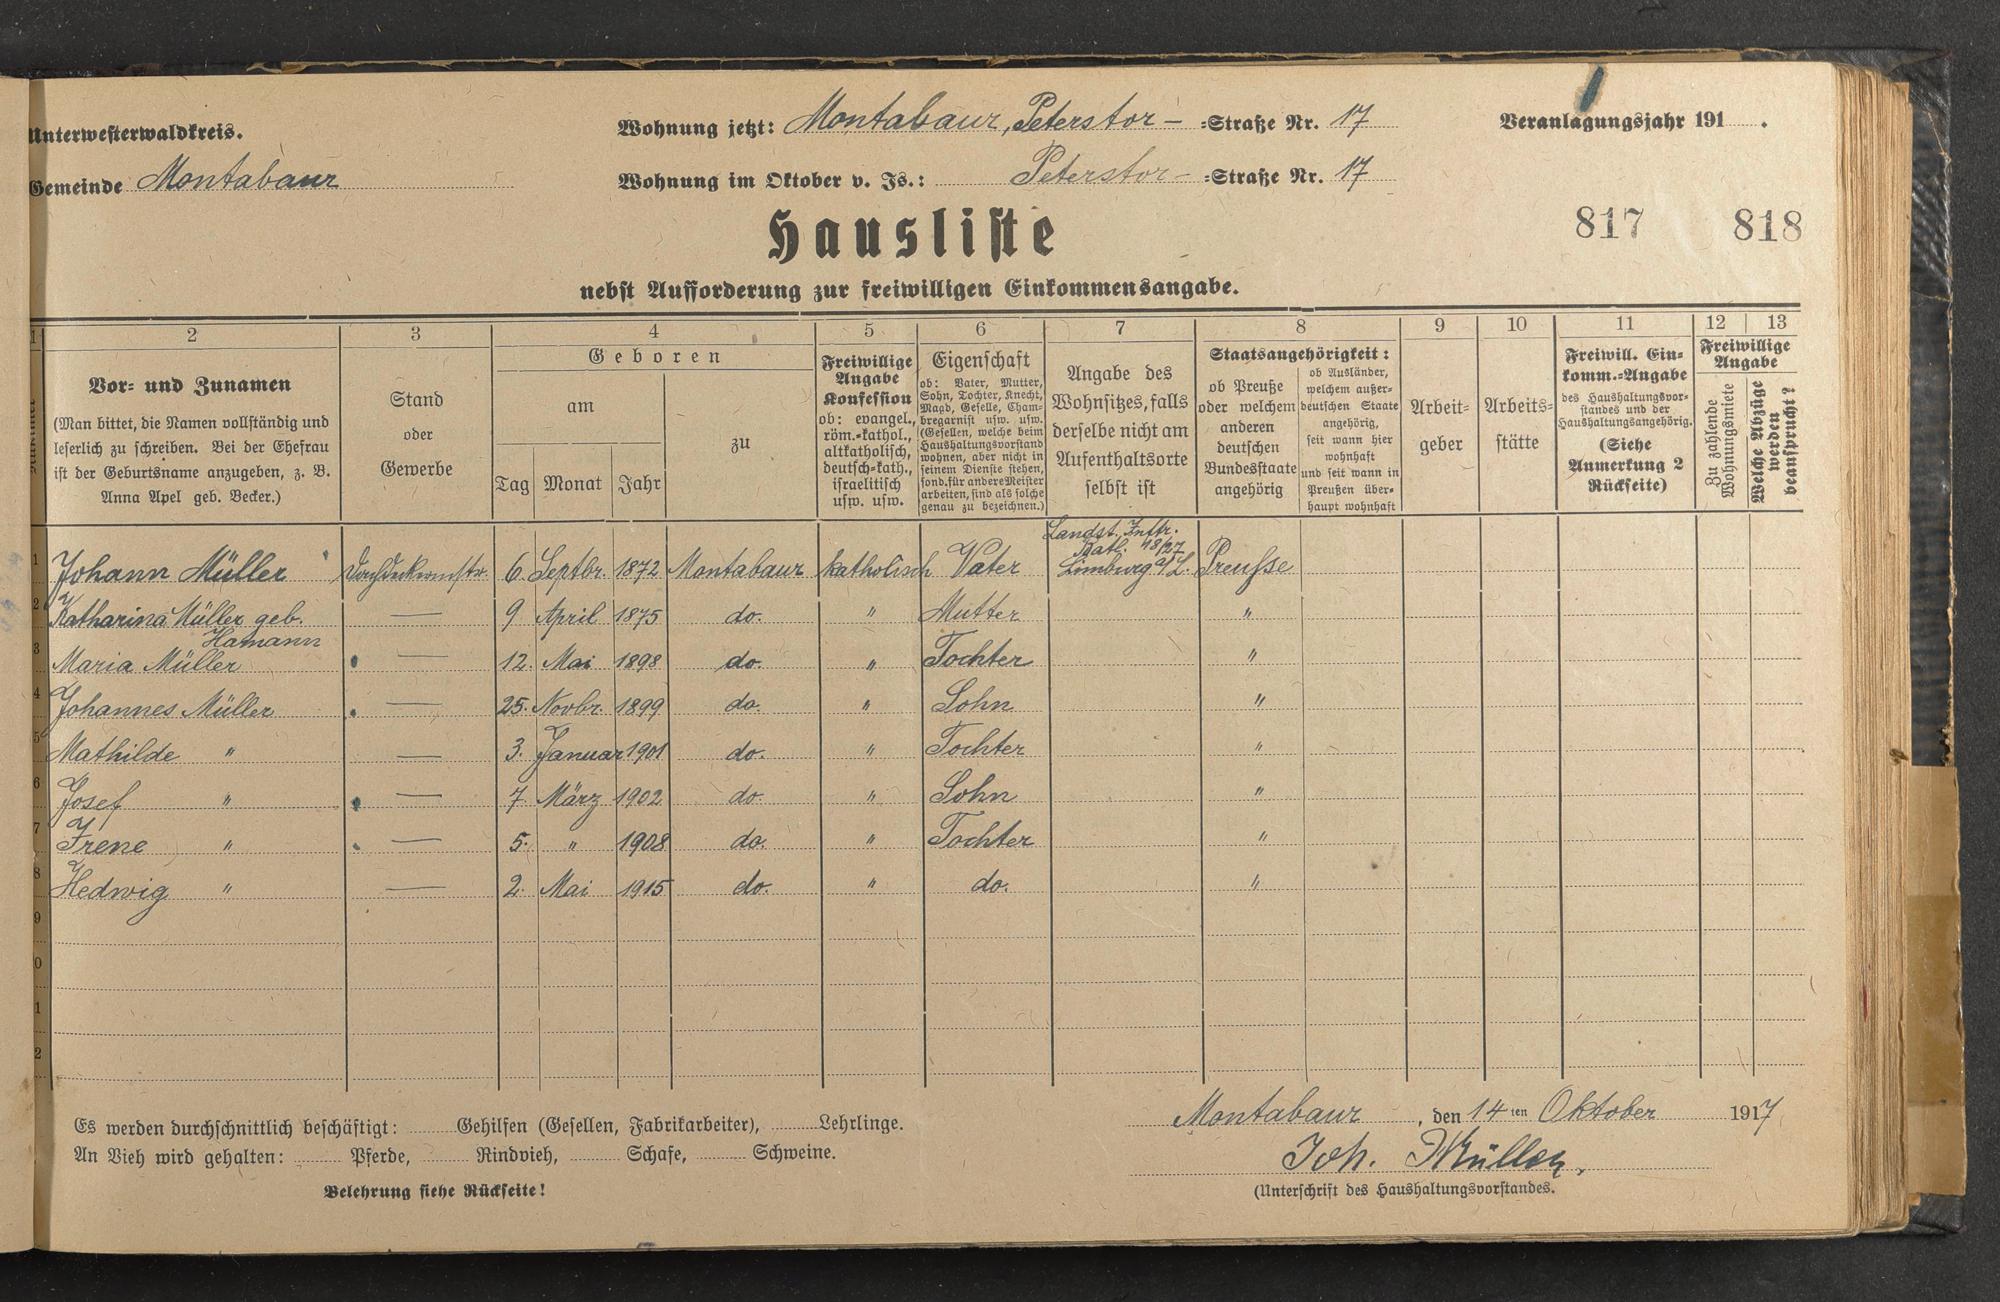 Unterwesterwaldkreis.
Wohnung jetzt: Montabaur, Peterstor- =Straße Nr. 17
Veranlagungsjahr 191 .
Gemeinde Montabaur
Wohnung im Oktober v. Js.: Peterstor- =Straße Nr. 17
817 818
Hausliste
nebst Aufforderung zur freiwilligen Einkommensangabe.
1 2 3 4 5 6 7 8 9 10 11 12 13
Vor- und Zunamen
(Man bittet, die Namen vollständig und
leserlich zu schreiben. Bei der Ehefrau
ist der Geburtsname anzugeben, z. B.
Anna Apel geb. Becker.)
Stand
oder
Gewerbe
Geboren
am
Tag Monat Jahr
zu
Freiwillige
Angabe
Konfession
ob: evangel.,
röm.-kathol.,
altkatholisch,
deutsch-kath.,
israelitisch
usw. usw.
Eigenschaft
ob: Vater, Mutter,
Sohn, Tochter, Knecht,
Magd, Geselle, Cham-
bregarnist usw. usw.
(Gesellen, welche beim
Haushaltungsvorstand
wohnen, aber nicht in
seinem Dienste stehen,
sond. für andere Meister
arbeiten, sind als solche
genau zu bezeichnen.)
Angabe des
Wohnsitzes, falls
derselbe nicht am
Aufenthaltsorte
selbst ist
Staatsangehörigkeit:
ob Preuße
oder welchem
anderen
deutschen
Bundesstaate
angehörig
ob Ausländer,
welchem außer-
deutschen Staate
angehörig,
seit wann hier
wohnhaft
und seit wann in
Preußen über-
haupt wohnhaft
Arbeit-
geber
Arbeits-
stätte
Freiwill. Ein-
komm.-Angabe
des Haushaltungsvor-
standes und der
Haushaltungsangehörig.
(Siehe
Anmerkung 2
Rückseite)
Freiwillige
Angabe
Zu zahlende
Wohnungsmiete
Welche Abzüge
werden
beansprucht?
Landst. Inftr.
Batl. 18/27
1 Johann Müller Dachdeckermstr. 6. Septbr. 1872 Montabaur katholisch Vater Limburg a/L. Preusse
2 Katharina Müller geb. — 9 April 1875 do. " Mutter "
Hamann
3 Maria Müller — 12. Mai 1898 do. " Tochter "
4 Johannes Müller — 25. Novbr. 1899 do. " Sohn "
5 Mathilde " — 3. Januar 1901 do. " Tochter "
6 Josef " — 7. März 1902 do. " Sohn "
7 Irene " — 5. " 1908 do. " Tochter "
8 Hedwig " — 2. Mai 1915 do. " do. "
9
0
1
2
Es werden durchschnittlich beschäftigt: Gehilfen (Gesellen, Fabrikarbeiter), Lehrlinge.
An Vieh wird gehalten: Pferde, Rindvieh, Schafe, Schweine.
Belehrung siehe Rückseite!
Montabaur, den 14 ten Oktober 1917
Joh. Müller.
(Unterschrift des Haushaltungsvorstandes.